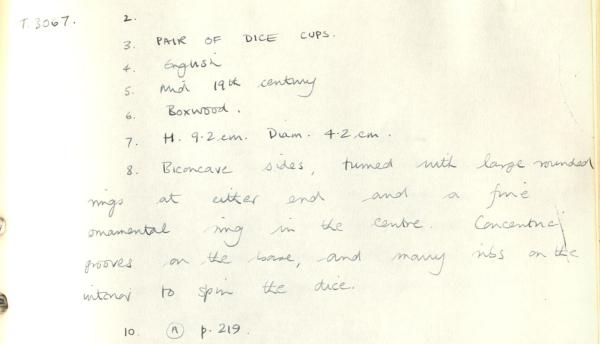 T. 3067.
2.
3. PAIR OF DICE CUPS.
4. English
5. Mid 19th century
6. Boxwood.
7. H. 9.2 cm. Diam. 4.2 cm.
8. Biconcave sides, turned with large rounded
rings at either end and a fine
ornamental ring in the centre. Concentric
grooves on the base, and many ribs on the
interior to spin the dice.
10. A p. 219.